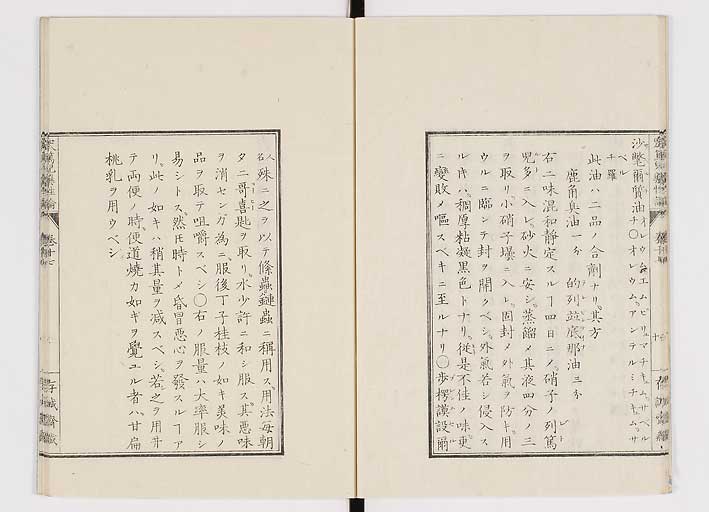 沙鼈爾膋油オレウムエムピリュマチキュムサベル
ベル
チ羅
チ〇オレウムアンテルミンチキュムサ
此油ハ二品ノ合劑ナリ其方
鹿角臭油一分 的列並底那油三分
右二味混和靜定スルヿ四日ニノ硝子ノ列篤
レト
兒多ニ入レ砂火ニ安シ蒸餾メ其液四分ノ三
ヲ取リ小硝子壜ニ入レ固封メ外氣ヲ防キ用
ウルニ臨ンテ封ヲ開クベシ外氣若シ侵入ス
ルキハ稠厚粘凝黒色トナリ從是不佳ノ味更
ニ變敗メ嘔スベキニ至ルナリ〇歩楞謨設爾
人名
殊ニ之ヲ以テ條蟲鏈蟲ニ稱用ス用法毎朝
タニ哥喜匙ヲ取リ水少許ニ和シ服ス其悪味
ヲ消センガ為ニ服後丁子桂枝ノ如キ美味ノ
品ヲ取テ咀嚼スベシ〇右ノ服量ハ大率服シ
易シトス然𪜈時トメ昏冒悪心ヲ發スルヿア
リ此ノ如キハ稍其量ヲ減スベシ若之ヲ用井
テ兩便ノ時便道燒カ如キヲ覺ユル者ハ甘扁
桃乳ヲ用ウベシ